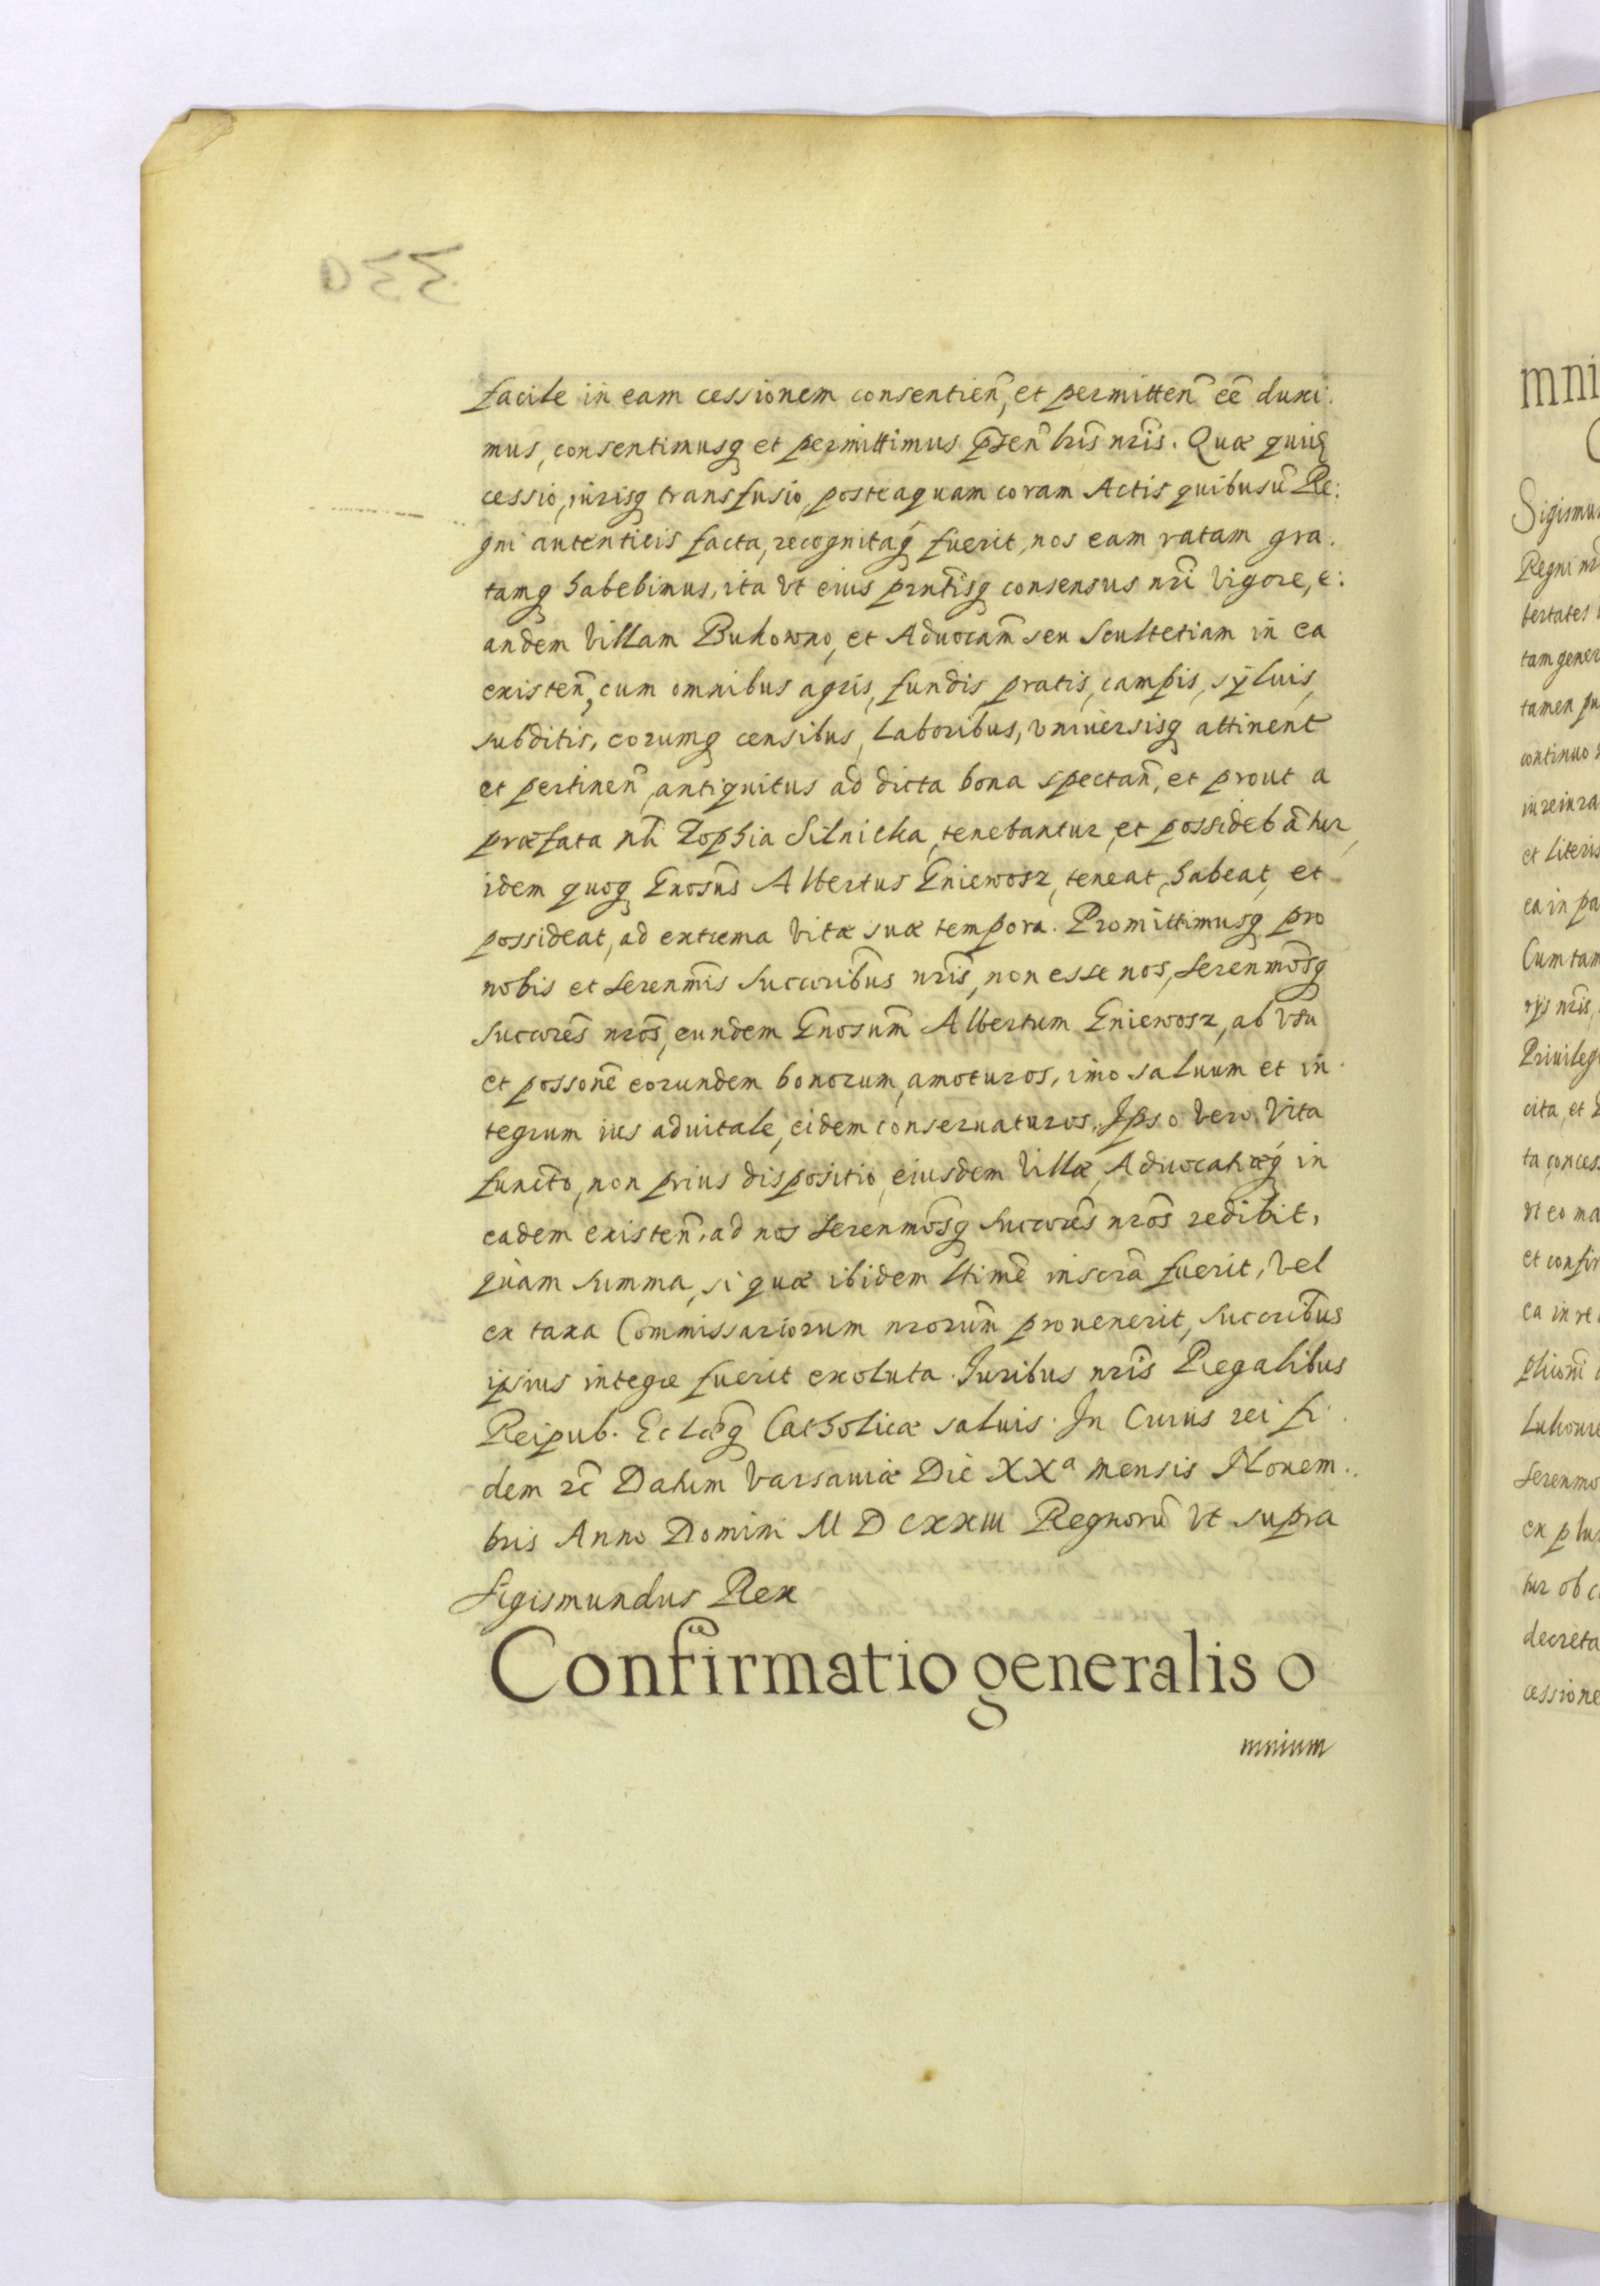 facile in eam cessionem consentien̄, et permitten̄ eē duxi:
mus, consentimusq̨ et permittimus p̄sen̄ lr̄is nr̄is. Quæ quid̨
cessio, iurisq̨ transfusio, posteaquam coram Actis quibusū Re:
gni autenticis facta, recognitaq̨ fuerit, nos eam ratam gra.
tamq̨ habebimus, ita vt eius prn̄tisq̨ consensus nr̄i vigore, e:
andem villam Bukowno, et Advocam̄ seu scultetiam in ea
existen̄, cum omnibus agris, fundis pratis, campis, sÿluis,
subditis, eorumq̨ censibus, laboribus, vniversisq̨ attinent̄
et pertinen̄, antiquitus ad dicta bona spectan̄, et prout a
præfata nb̄li Zophia Silnicka, tenebantur, et possidebātur,
idem quoq̨ Gn̄osus Albertus Gniewosz, teneat, habeat, et
possideat, ad extrema vitæ suæ tempora. Promittimusq̨ pro
nobis et Seren̄mis Succoribus̄ nr̄is, non esse nos, Seren̄mosq̨
Succores̄ nr̄os, eundem Gn̄osum Albertum Gniewosz, ab vsu
et posson̄e eorundem bonorum, amoturos, imo saluum et in
tegrum ius aduitale, eidem conseruaturos. Ipso vero vita
functo, non prius dispositio, eiusdem villæ, Aduocatiæq̨ in
eadem existen̄, ad nos Seren̄mosq̨ Succores̄ nr̄os redibit,
quam summa, si quæ ibidem ltimē inscrā fuerit, vel
ex taxa Commissariorum nrorum̄ prouenerit, Succoribus̄
ipsius integre fuerit exoluta. Iuribus nr̄is Regalibus
Reipub. Ecclæq̨ Catholicæ saluis. In Cuius rei fi
dem rc̄ Datum Varsauiæ Die XXa mensis Nouem.
bris Anno Domini M D CXXIII Regnorū vt supra
Sigismundus Rex
Confirmatio generalis o
mnium